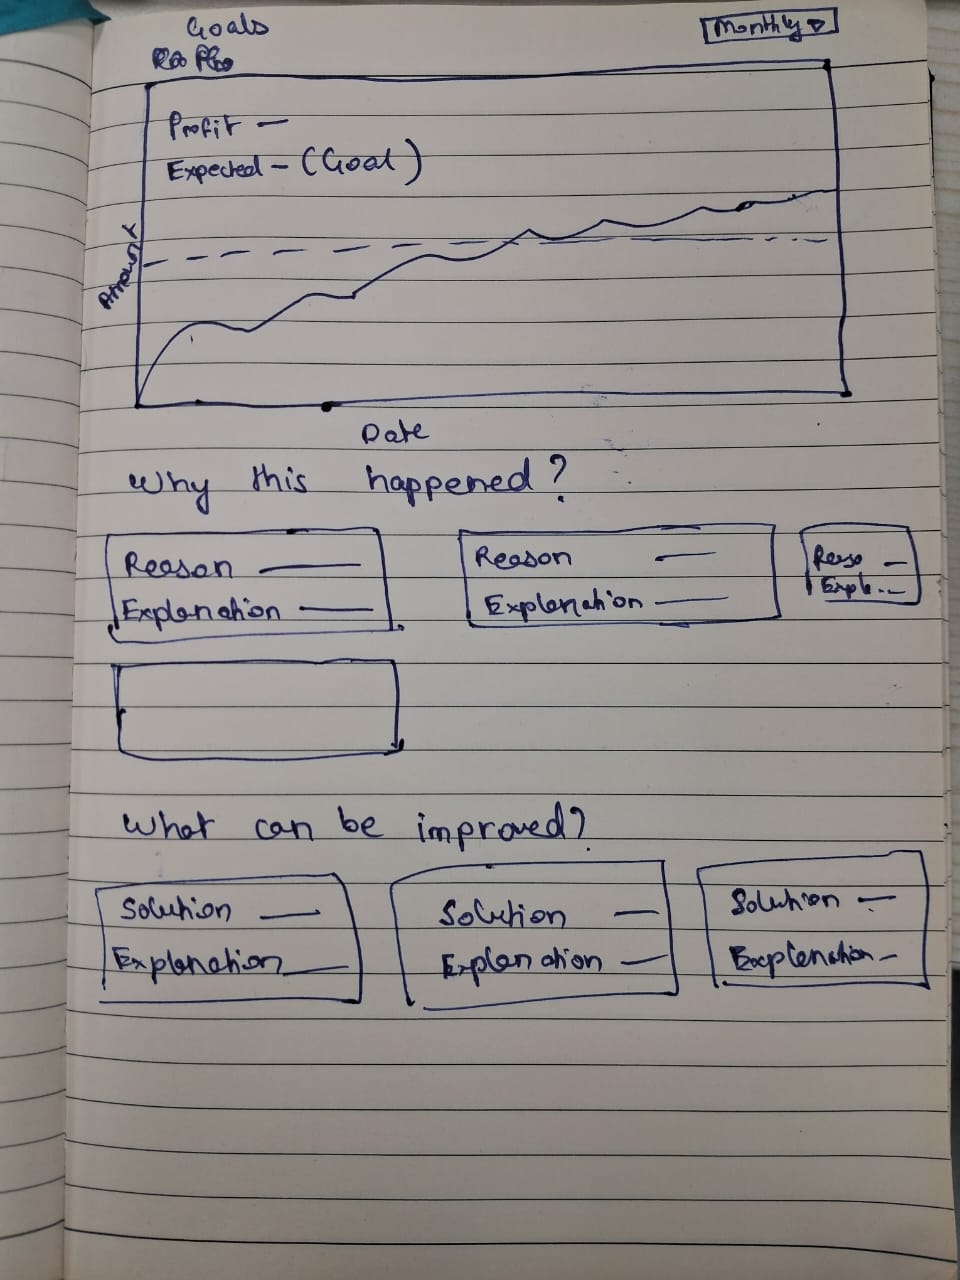 Goals
Monthly
Profit —
Expected – (Goal)
Amount
Date
Why this happened?
Reason —
Explanation —
Reason —
Explanation —
Reaso —
Expla..
What can be improved?
Solution —
Explanation —
Solution —
Explanation —
Solution —
Explanation –